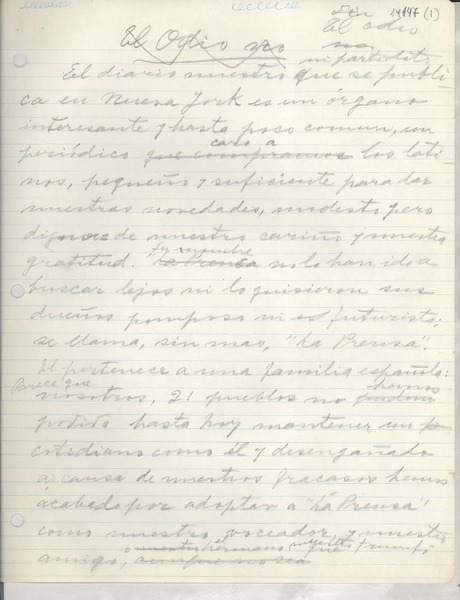 Sin 14147 (1)
El Odio no El odio
no
ni partidito
El diario nuestro que se publi
ca en Nueva York es un órgano
interesante y hasta poco comun, un
caro a
periódico que compramos los lati
nos, pequeño y suficiente para dar
nuestras novedades, modesto pero
digno de nuestro cariño y nuestra
gratitud. Su nombre La Prensa no lo han ido a
buscar lejos ni lo quisieron sus
dueños pomposo ni es futurista;
se llama, sin mas, "La Prensa".
El pertenece a una familia española:
Parece que hemos
nosotros, 21 pueblos no
podido hasta hoy mantener un
cotidiano como él y desengañado
a causa de nuestros fracasos hemos
acabado por adoptar a "La Prensa"
como nuestro voceador, y nuestro
amigo, aunque no sea